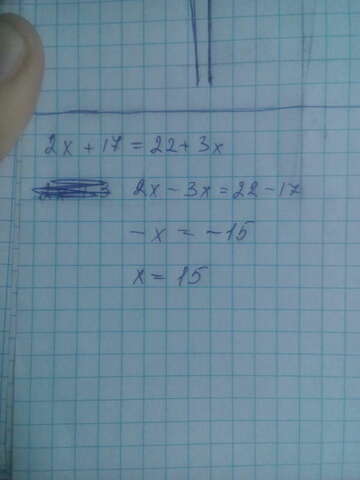 2x + 17 = 22 + 3x
2x - 3x = 22 - 17
- x = - 15
x = 15